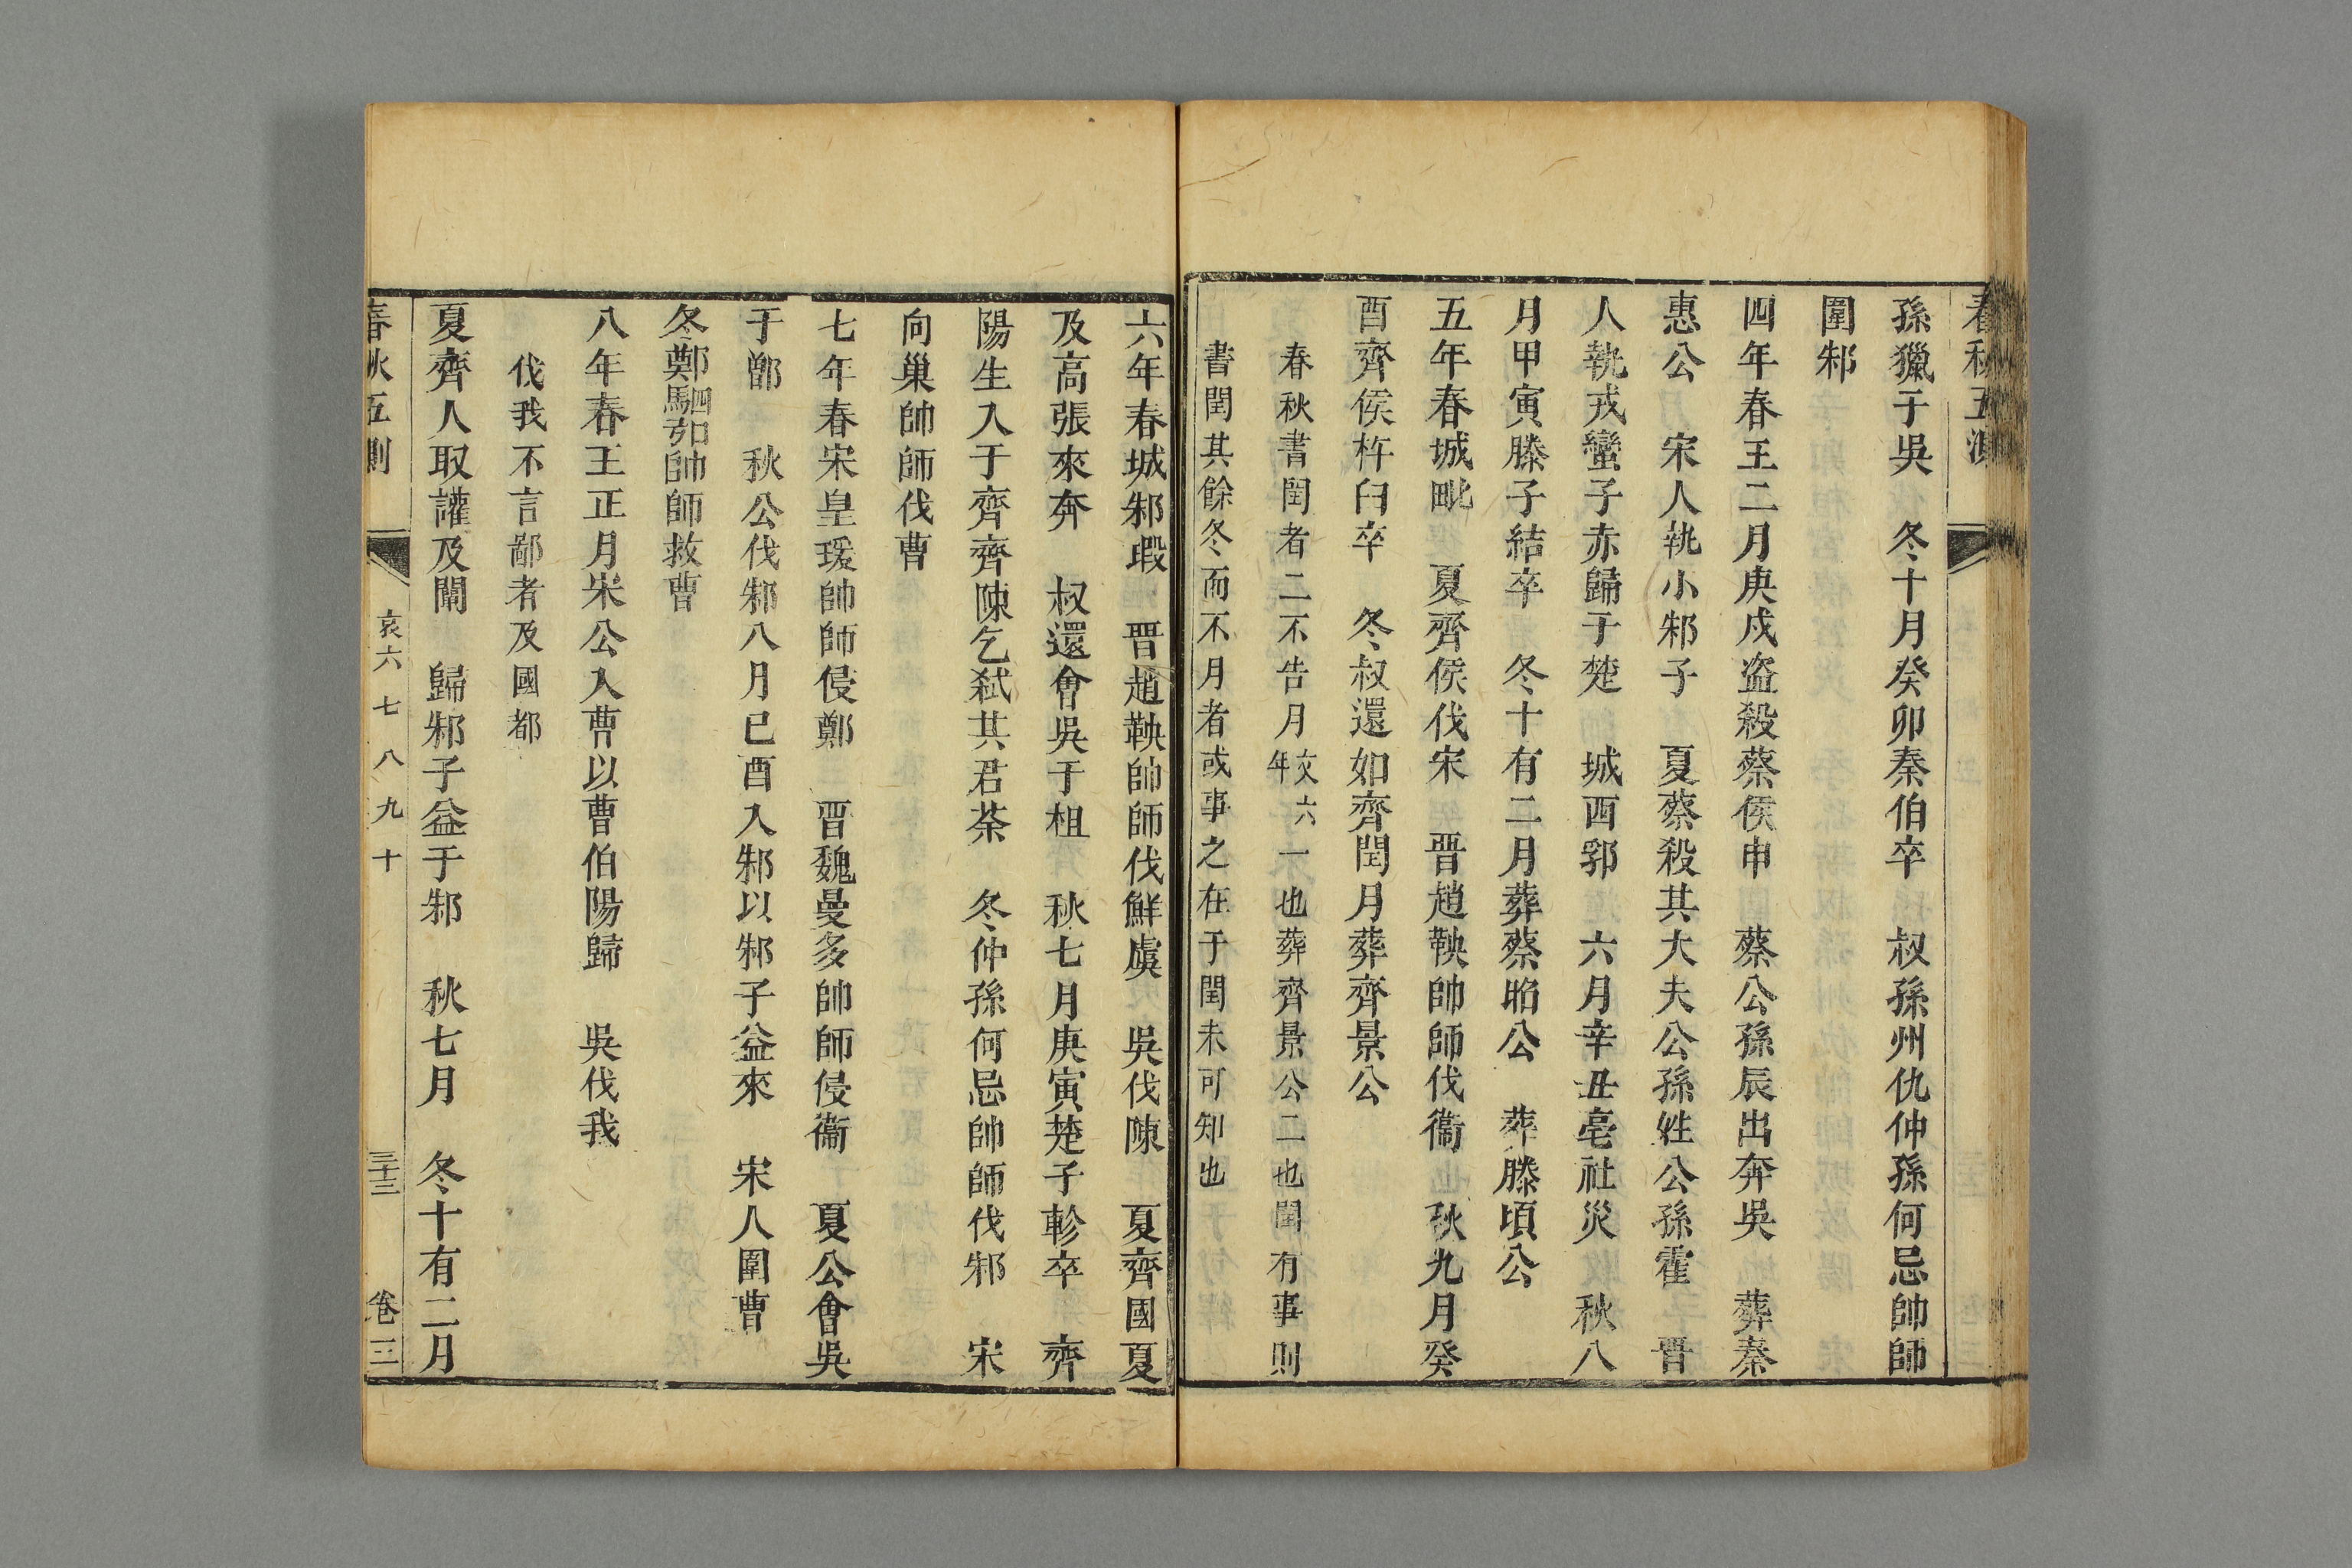 春秋五測
孫獵于吳　冬十月癸卯秦伯卒　叔孫州仇仲孫何忌帥師
圍邾
四年春王二月庚戌盗殺蔡侯申　蔡公孫辰出奔吳　葬秦
惠公　宋人執小邾子　夏蔡殺其大夫公孫姓公孫霍　晋
人執戎蠻子赤歸于楚　城西郛　六月辛丑亳社災　秋八
月甲寅滕子結卒　冬十有二月葬蔡昭公　葬滕頃公
五年春城毗　夏齊侯伐宋　晋趙鞅帥師伐衞　秋九月癸
酉齊侯杵臼卒　冬叔還如齊閏月葬齊景公
春秋書閏者二不告月文六年一也葬齊景公二也閏有事則
書閏其餘冬而不月者或事之在于閏未可知也
六年春城邾瑕　晋趙鞅帥師伐鮮虞　吳伐陳　夏齊國夏
及高張來奔　叔還會吳于柤　秋七月庚寅楚子軫卒　齊
陽生入于齊齊陳乞弑其君荼　冬仲孫何忌帥師伐邾　宋
向巢帥師伐曹
七年春宋皇瑗帥師侵鄭　晋魏曼多帥師侵衞　夏公會吳
于鄫　秋公伐邾八月已酉入邾以邾子益來　宋人圍曹
冬鄭駟弘帥師救曹
八年春王正月宋公入曹以曹伯陽歸　吳伐我
伐我不言鄙者及國都
夏齊人取讙及闡　歸邾子益于邾　秋七月　冬十有二月
春秋五測　哀六　七　八　九　十　三十三　卷三